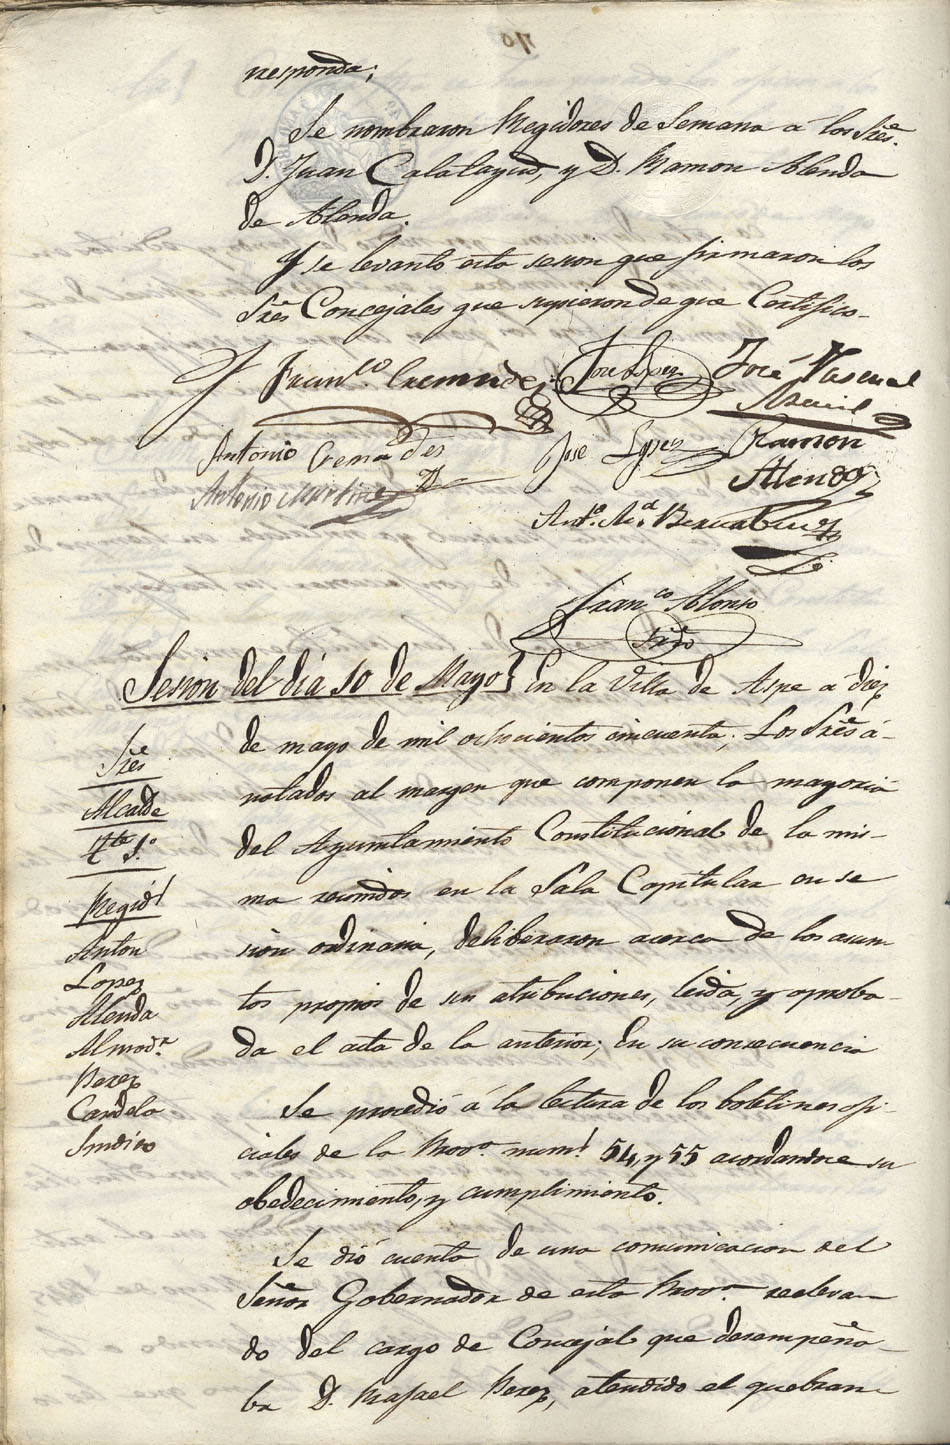 responda;
Se nombraron Regidores de Semana a los Sres.
D. Juan Calatayud, y D. Ramon Alenda
de Alenda.
Y se levantó esta sesion que firmaron los
Sres Concejales que supieron de que Certifico.
Franco. Cremades
José Lopez
José Pascual
Antonio Cremades
José Lopez
Ramon
Alenda
Antonio Martinez
Anto. Ma. Berenguer
Franco Alonso
Srio
Sesion del dia 10 de Mayo} En la Villa de Aspe a diez
de mayo de mil ochocientos cincuenta; Los Sres á-
notados al margen que componen la mayoria
del Ayuntamiento Constitucional de la mis-
ma reunidos en la Sala Capitular en se
sion ordinaria, deliberaron acerca de los asun
tos propios de sus atribuciones, leida, y aproba-
da el acta de la anterior; En su consecuencia
Sres
Alcalde
Tte 1.º
Regid.
Anton
Lopez
Alenda
Almodr.
Perez
Candela
Sindico
Se procedió á la lectura de los boletines ofi-
ciales de la Prova. num. 54, y 55 acordandose su
obedecimiento, y cumplimiento.
Se dió cuenta de una comunicacion del
Señor Gobernador de esta Prova. relevan
do del cargo de Concejal que desempeña-
ba D. Rafael Perez, atendido el quebran